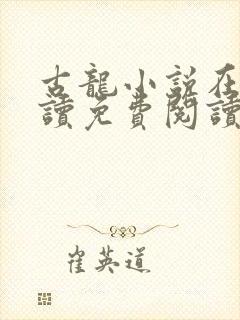 古龍小説在
讀免費閱讀
崔英道